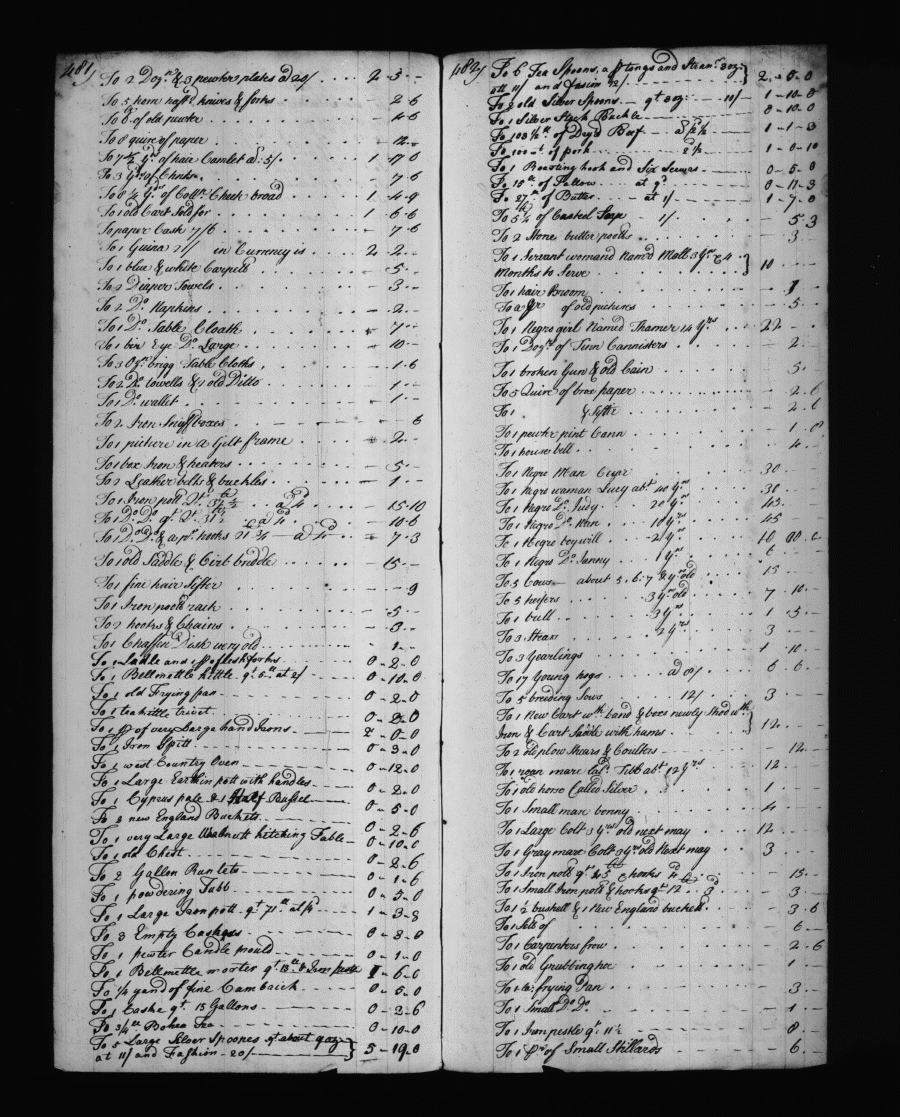 481/
To 2 Dozn. & 3 pewter plates ad 20/ .... 2 - 5 --
To 5 horn haft knives & forks ..... 2 - 6
To 6 lb of old pewter ..... 4 - 6
To 8 quire of paper ..... 12 --
To 7½ yds of hair Camlet ad 5/ .... 1 - 17 - 6
To 3 yds of Check ..... 7 - 6
To 8¼ yds of Cottn. Check broad 1 - 4 - 9
To 1 old Cart Sold for ..... 1 - 6 - 6
To paper Cash 7/6 ..... - 7 - 6
To 1 Guina 21/ in Currency is .. 2 - 2 --
To 1 blue & white Carpett ..... - 5 --
To 2 Diaper Towels ..... - 3 --
To 2 Do. Napkins ..... - 2 --
To 1 Do. Table Cloath ..... - 7 --
To 1 bir Eye Do. Large ..... - 10 --
To 3 Ozn. brigg Table Cloths ..... - 1 - 6
To 2 Do. towells & 1 old Ditto ..... - 1 --
To 1 Do. wallet ..... - 1 --
To 2 Iron Snuffboxes ..... - - 6
To 1 picture in a Gilt frame .... - 2 --
To 1 box Iron & heaters ..... - 5 --
To 2 Leather belts & buckles ..... - 1 --
To 1 Iron pott qt. 37½ .. ad 4d ..... - 15 - 10
To 1 Do. Do. qt. 31½ ad 4d ..... - 10 - 6
To 1 Do. Do. & a pr. hooks 21¾ - ad 4d .. - 7 - 3
To 1 old Saddle & Cirb briddle ..... - 15 --
To 1 fine hair Sifter ..... - 9
To 1 Iron pott rack ..... - 5 --
To 2 hooks & Chains ..... - 3 --
To 1 Chaffin Dish very old ..... - 1 --
To 1 Ladle and 1 pr flesh forks ..... 0 - 2 - 0
To 1 Bellmettle kittle qt. 5 lb at 2/ .... 0 - 10 - 0
To 1 old Frying pan ..... 0 - 2 - 0
To 1 teakittle trivet ..... 0 - 2 - 0
To 1 pr of very Large hand Irons ..... 2 - 0 - 0
To 1 Iron Spitt ..... 0 - 3 - 0
To 1 west Country Oven ..... 0 - 12 - 0
To 1 Large Earthin pott with handles 0 - 2 - 0
To 1 Cyprus pale & 1 Half Bushel 0 - 5 - 0
To 2 new England Buckets ..... 0 - 2 - 6
To 1 very Large Walnutt kitching Table 0 - 10 - 0
To 1 old Chest ..... 0 - 2 - 6
To 2 Gallon Runlets ..... 0 - 1 - 6
To 1 powdering Tubb ..... 0 - 5 - 0
To 1 Large Iron pott qt 71 lb at 4d 1 - 3 - 8
To 8 Empty Casques ..... 0 - 8 - 0
To 1 pewter Candle mould ..... 0 - 1 - 0
To 1 Bellmettle morter qt. 18 lb & Iron pestle 1 - 6 - 0
To ¼ yand of fine Cambrick ..... 0 - 5 - 0
To 1 Caske qt. 15 Gallons ..... 0 - 2 - 6
To ¾ lb Bohea Tea ..... 0 - 10 - 0
To 5 Large Silver Spoones qt about 9 oz
at 11/ and Fashion - 20/ } 5 - 19 - 0
482/
To 6 Tea Spoons, a pr tongs and Strainr. 3 oz:
att 11/ and fasion 12/ } 2 - 5 - 0
To 2 old Silver Spoons - qt 3 oz: - 10/ 1 - 10 - 0
To 1 Silver Stock Buckle 0 - 10 - 0
To 108½ lb of Dry'd Beef ad 2½ 1 - 1 - 3
To 100 wt of pork 2½ 1 - 0 - 10
To 1 Boasting hook and Six 0 - 5 - 0
To 15 lb of Tallow at 9d 0 - 11 - 3
To 27 lb of Butter at 1/ 1 - 7 - 0
To 5¼ lb of Casteel Sope - 1/ - 5 - 3
To 2 Stone butter potts ..... - 3 --
To 1 Servant womand Namd Moll 3 yrs & 4
Months to Serve } 10
To 1 hair Broom ..... - 1 --
To a pr of old pictures ..... - 5 --
To 1 Negro girl Named Thamer 14 yrs .. 22 - -
To 1 Dozn. of Tinn Cannisters ..... - 2 -
To 1 broken Gun & old Cain ..... - 5 -
To 5 Quire of brow paper ..... - 2 - 6
To 1 & Sifter ..... - 2 - 6
To 1 pewter pint Cann ..... - 1 - 0
To 1 house bell ..... - 4 -
To 1 Negro Man Cupr ..... 30
To 1 negro woman Lucy abt. 40 yrs .. 30 --
To 1 Negro Do. Judy . . 20 yrs .. 45
To 1 Negro Do. 18 yrs .. 45
To 1 Negro boy will . . 2 yrs .. 10
To 1 Negro Do. Janny . . 1 yrs .. 6
To 5 Cows - about 5. 6. 7 & 8 yrs old .. 15 --
To 5 heifers . . 3 yrs old .. 7 - 10 -
To 1 bull . . 3 yrs .. 1 - 5 -
To 3 Stears . . 2 yrs .. 3 --
To 3 Yearlings ..... 1 - 10 -
To 17 Young hogs . . ad 8/ .. 6 - 6 -
To 5 breeding Sows . . 12/ .. 3 --
To 1 New Cart wth. band & boxs newly Shod wth.
Iron & Cart Sadle with hams } 12 --
To 2 old plow Shears & Coulters ..... 12 -
To 1 roan mare Cald. Tibb abt. 12 yrs .. 12 --
To 1 old horse Called Silver ..... 1 --
To 1 Small mare bonny ..... 4 --
To 1 Large Colt 3 yrs old next may .. 12 --
To 1 Gray mare Colt 3 yrs old Next may .. 3 --
To 1 Iron pott qt 45 lb & hooks 4d ..... - 15 -
To 1 Small Iron pott & hooks qt 12 .. 3d .. - 3 -
To 1 ½ bushell & 1 New England buckett .. - 3 - 6
To 1 Sett of ..... - 6 --
To 1 Carpenters frow ..... - 2 - 6
To 1 old Grubbing hoe ..... - 1 --
To 1 Lr: frying Pan ..... - 3 --
To 1 Small Do. Do. ..... - 1
To 1 Iron pestle qt. 11½ ..... - 8 --
To 1 pr of Small Stillards ..... - 6 -